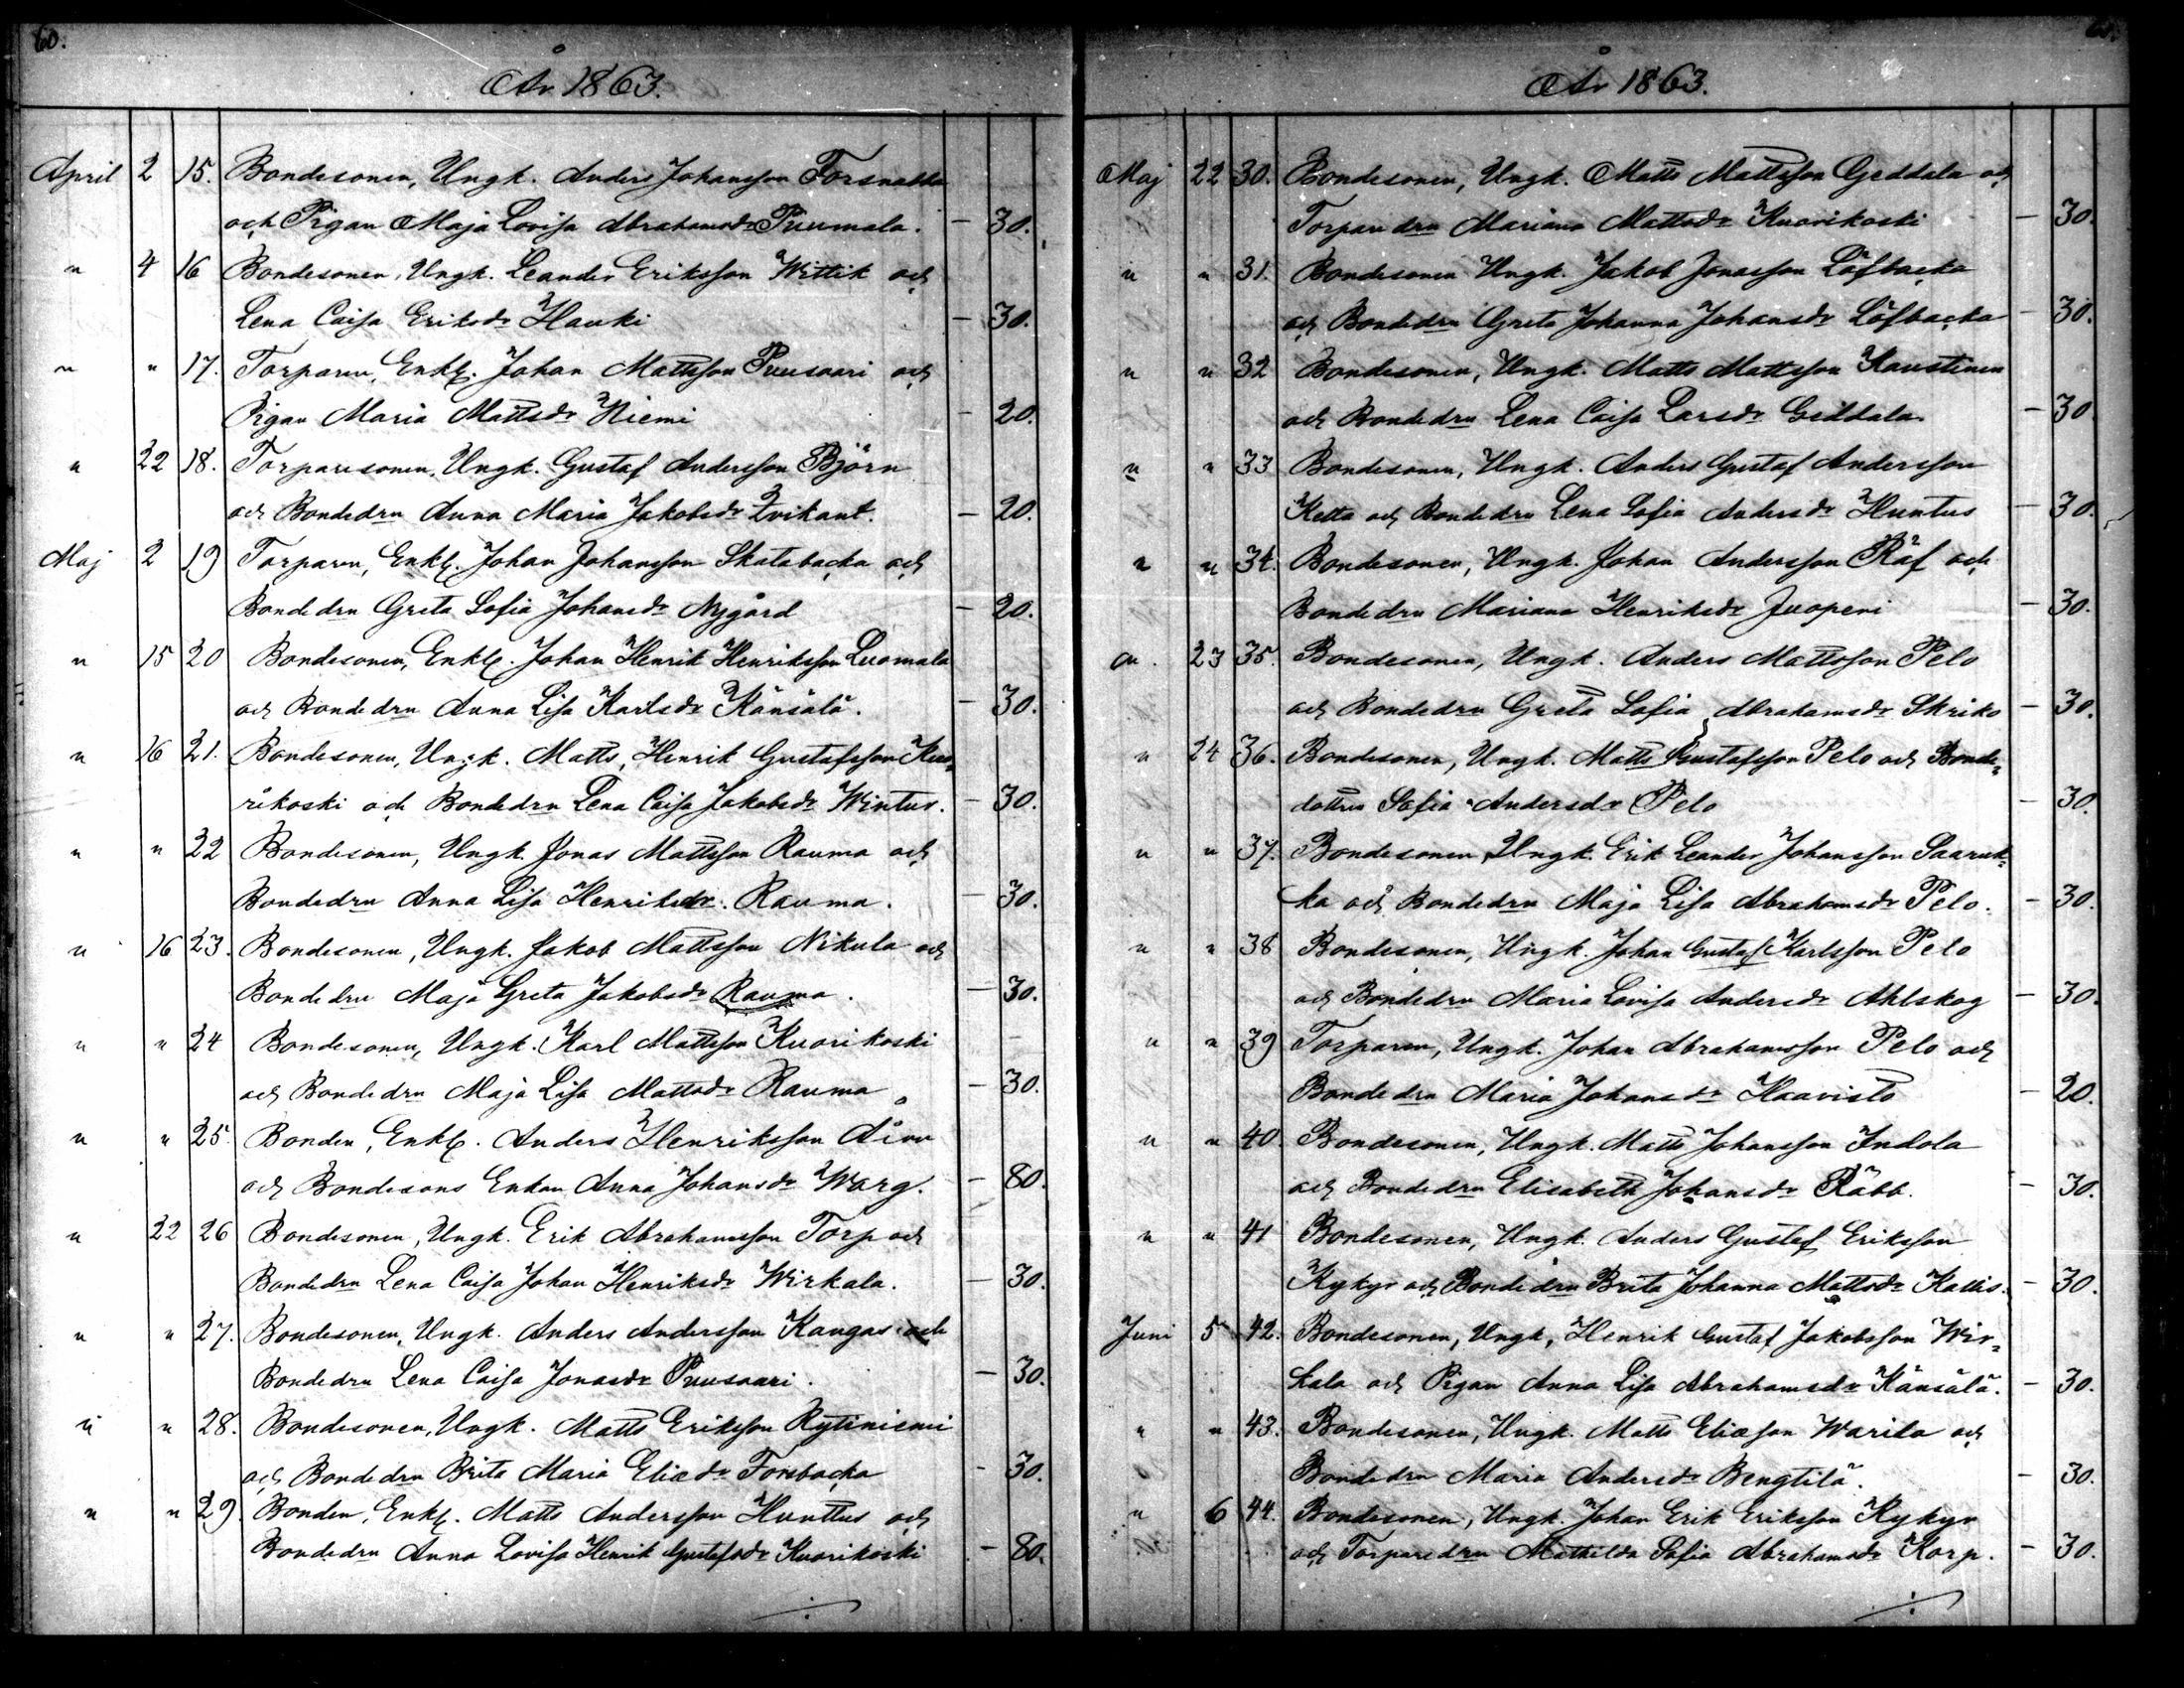 60.
År 1863.
April 2 15. Bondesonen, Ungk. Anders Johansson Forsnabba
och Pigan Maja Lovisa Abrahamsdr Puumala. — 30.
" 4 16 Bondesonen, Ungk. Leander Eriksson Wittik och
Lena Caisa Eriksdr Hauki — 30.
" " 17. Torparen, Enkl. Johan Mattsson Puusaari och
Pigan Maria Mattsdr Niemi — 20.
" 22 18. Torparesonen, Ungk. Gustaf Andersson Björn
och Bondedrn Anna Maria Jakobsdr Qvikant. — 20.
Maj 2 19 Torparen, Enkl. Johan Johansson Skatabacka och
Bondedrn Greta Sofia Johansdr Nygård — 20.
" 15 20 Bondesonen, Enkl. Johan Henrik Henriksson Luomala
och Bondedrn Anna Lisa Karlsdr Känsälä. — 30.
" 16 21. Bondesonen, Ungk. Matts, Henrik Gustafsson Kuo-
rikoski och Bondedrn Lena Caisa Jakobsdr Wintur. — 30.
" " 22 Bondesonen, Ungk. Jonas Mattsson Rauma och
Bondedrn Anna Lisa Henriksdr. Rauma. — 30.
" 16 23. Bondesonen, Ungk. Jakob Mattsson Nikula och
Bondedrn Maja Greta Jakobsdr Rauma. — 30.
" " 24 Bondesonen, Ungk. Karl Mattsson Kuorikoski
och Bondedrn Maja Lisa Mattsdr Rauma — 30.
" " 25. Bonden, Enkl. Anders Henriksson
och Bondesons Enkan Anna Johansdr Warg. — 80.
" 22 26 Bondesonen, Ungk. Erik Abrahamsson Torp och
Bondedrn Lena Caisa Johan Henriksdr Wirkala. — 30.
" " 27. Bondesonen, Ungk. Anders Andersson Kangas och
Bondedrn Lena Caisa Jonasdr Puusaari. — 30.
" " 28. Bondesonen, Ungk. Matts Eriksson Rytiniemi
och Bondedrn Brita Maria Eliædr Forsbacka — 30.
" " 29. Bonden, Enkl. Matts Andersson Hunttus och
Bondedrn Anna Lovisa Henrik Gustafsdr Kuorikoski — 80.
År 1863.
Maj 22 30. Bondesonen, Ungk. Matts Mattsson Geddala och
Torparedrn Mariana Mattsdr Kuorikoski — 30.
" " 31. Bondesonen Ungk. Jakob Jonasson Löfbacka
och Bondedrn Greta Johanna Johansdr Löfbacka — 30.
" " 32 Bondesonen, Ungk. Matts Mattsson Kaustinen
och Bondedrn Lena Caisa Larsdr Geddala. — 30
" " 33 Bondesonen, Ungk. Anders Gustaf Andersson
Ketta och Bondedrn Lena Sofia Andersdr Huntus — 30.
" " 34. Bondesonen, Ungk. Johan Andersson Räf och
Bondedrn Mariana Henriksdr Juopeni — 30.
" 23 35. Bondesonen, Ungk. Anders Mattsson Pelo
och Bondedrn Greta Sofia Abrahamsdr Skriko — 30.
" 24 36. Bondesonen, Ungk. Matts Gustafsson Pelo och Bonde-
dottren Sofia Andersdr Pelo — 30.
" " 37. Bondesonen, Ungk. Erik Leander Johansson Saaruk-
ka och Bondedrn Maja Lisa Abrahamsdr Pelo. — 30.
" " 38 Bondesonen, Ungk. Johan Gustaf Karlsson Pelo
och Bondedrn Maria Lovisa Andersdr Ahlskog — 30.
" " 39 Torparen, Ungk. Johan Abrahamsson Pelo och
Bondedrn Maria Johansdr Haavisto — 20.
" " 40. Bondesonen, Ungk. Matts Johansson Indola
och Bondedrn Elisabeth Johansdr Räbb. — 30.
" " 41 Bondesonen, Ungk. Anders Gustaf Eriksson
Kykyr och Bondedrn Brita Johanna Mattsdr Kattis. — 30.
Juni 5 42. Bondesonen, Ungk, Henrik Gustaf Jakobsson Wir-
kala och Pigan Anna Lisa Abrahamsdr Känsälä. — 30.
" " 43. Bondesonen, Ungk. Matts Eliæson Warila och
Bondedrn Maria Andersdr Bengtilä. — 30.
" 6 44. Bondesonen, Ungk. Johan Erik Eriksson Kykyr
och Torparedrn Mathilda Sofia Abrahamsdr Korp. — 30.